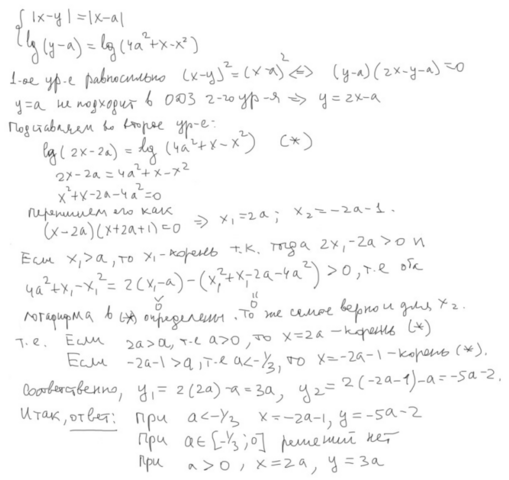 { |x-y| = |x-a|
lg(y-a) = lg(4a²+x-x²)
1-ое ур-е равносильно (x-y)² = (x-a)² ⇔ (y-a)(2x-y-a)=0
y=a не подходит в ОДЗ 2-го ур-я ⇒ y=2x-a
Подставляем во второе ур-е:
lg(2x-2a) = lg(4a²+x-x²) (*)
2x-2a = 4a²+x-x²
x²+x-2a-4a²=0
перепишем его как
(x-2a)(x+2a+1)=0 ⇒ x₁=2a; x₂=-2a-1.
Если x₁>a, то x₁-корень т.к. тогда 2x₁-2a>0 и
4a²+x₁-x₁² = 2(x₁-a)-(x₁²+x₁-2a-4a²)>0, т.е оба
логарифма в (*) определены. То же самое верно и для x₂.
т.е. Если 2a>a, т.е a>0, то x=2a-корень (*)
Если -2a-1>a, т.е a<-1/3, то x=-2a-1-корень (*).
Соответственно, y₁=2(2a)-a=3a, y₂=2(-2a-1)-a=-5a-2.
Итак, ответ: при a<-1/3 x=-2a-1, y=-5a-2
при a∈[-1/3;0] решений нет
при a>0, x=2a, y=3a